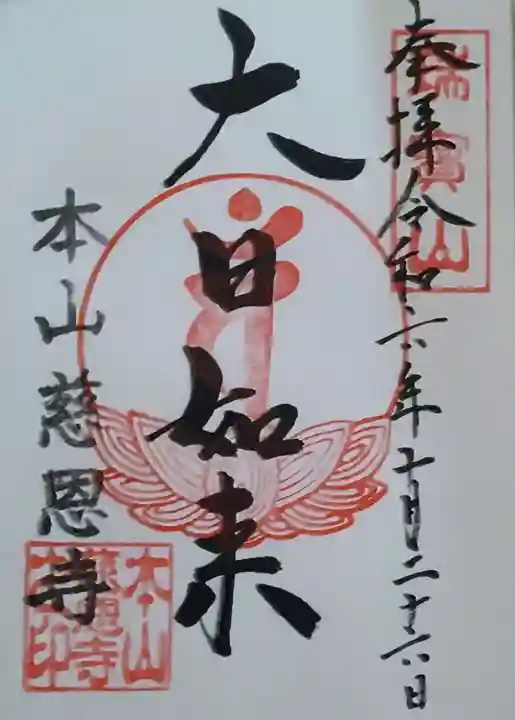 奉拝 令和六年十月二十六日
瑞寶山
大日如来
本山慈恩寺
本山
慈恩寺